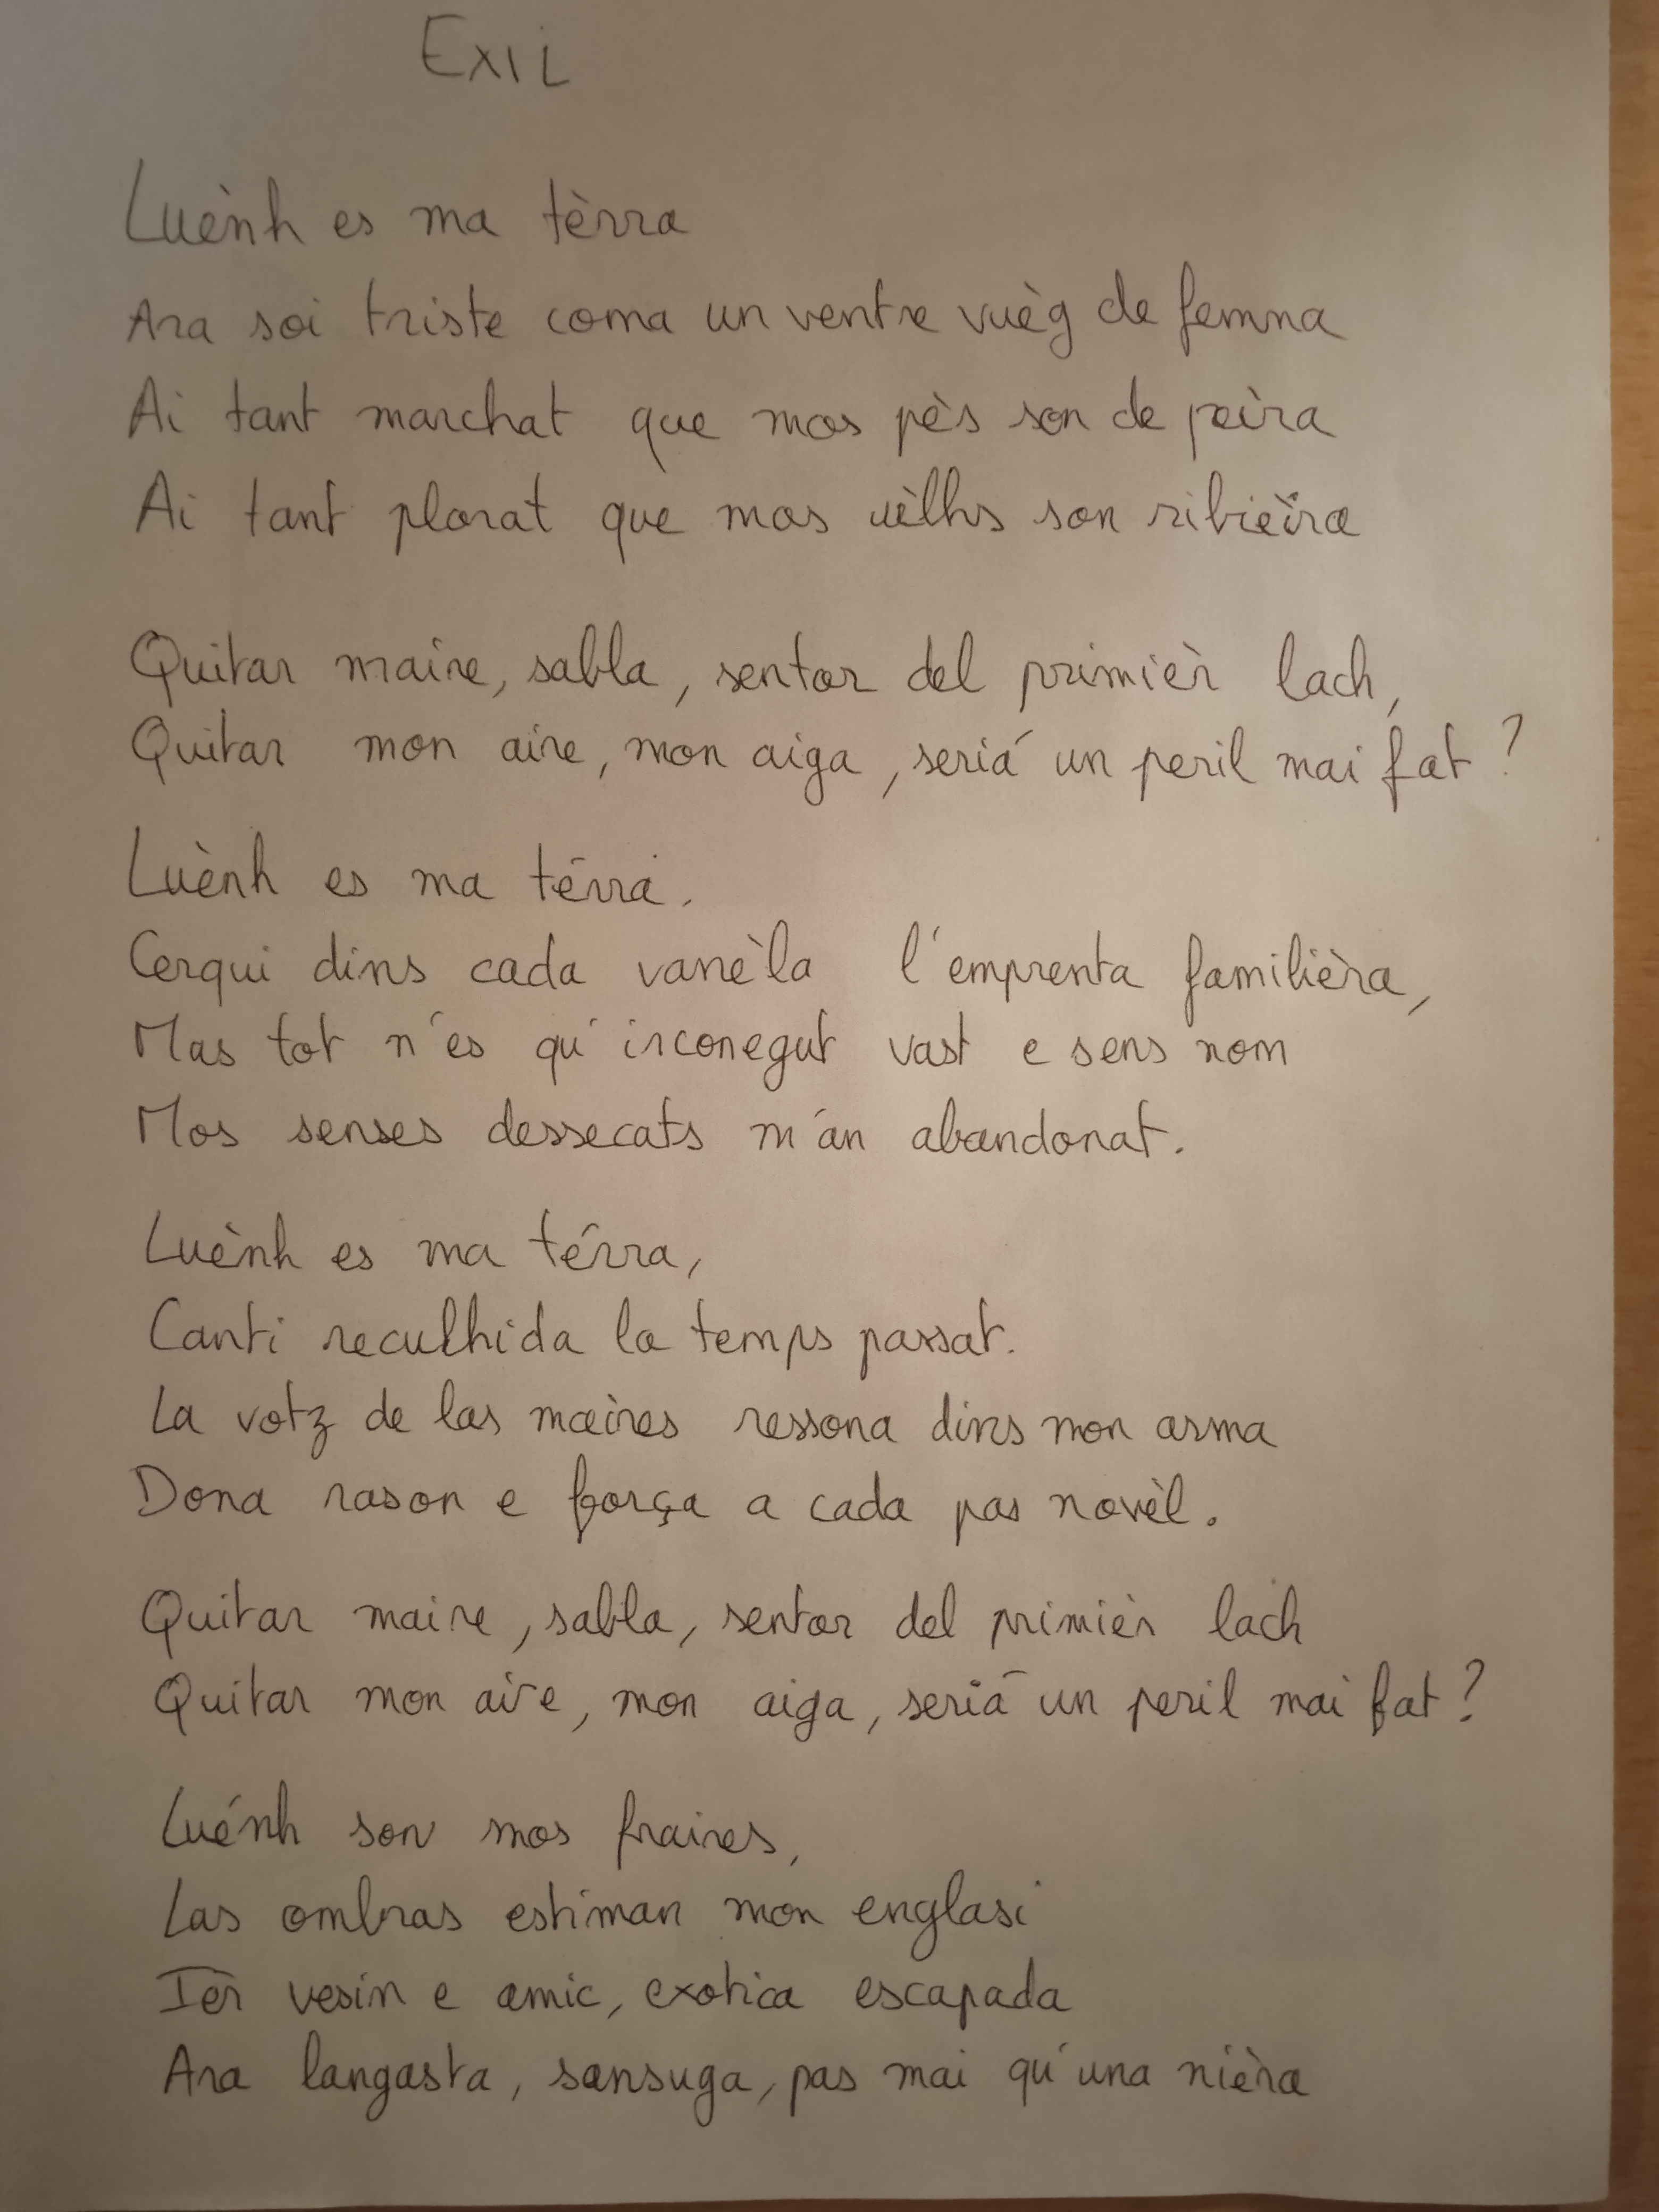 EXIL
Luènh es ma tèrra
Ara soi triste coma un ventre vuèg de femna
Ai tant marchat que mos pès son de pèira
Ai tant plorat que mos uèlhs son ribièira
Quitar maire, sabla, sentor del primièr lach,
Quitar mon aire, mon aiga, seriá un peril mai fat ?
Luènh es ma térra.
Cerqui dins cada vanèla l'emprenta familièra,
Mas tot n'es qu'inconegut vast e sens nom
Mos senses dessecats m'an abandonat.
Luènh es ma térra,
Canti reculhida lo temps passat.
La votz de las maires ressona dins mon arma
Dona rason e força a cada pas novèl.
Quitar maire, sabla, sentor del primièr lach
Quitar mon aire, mon aiga, seriá un peril mai fat ?
Luénh son mos fraires,
Las ombras estiman mon englasi
Ièr vesin e amic, exotica escapada
Ara langasta, sansuga, pas mai qu'una nièra